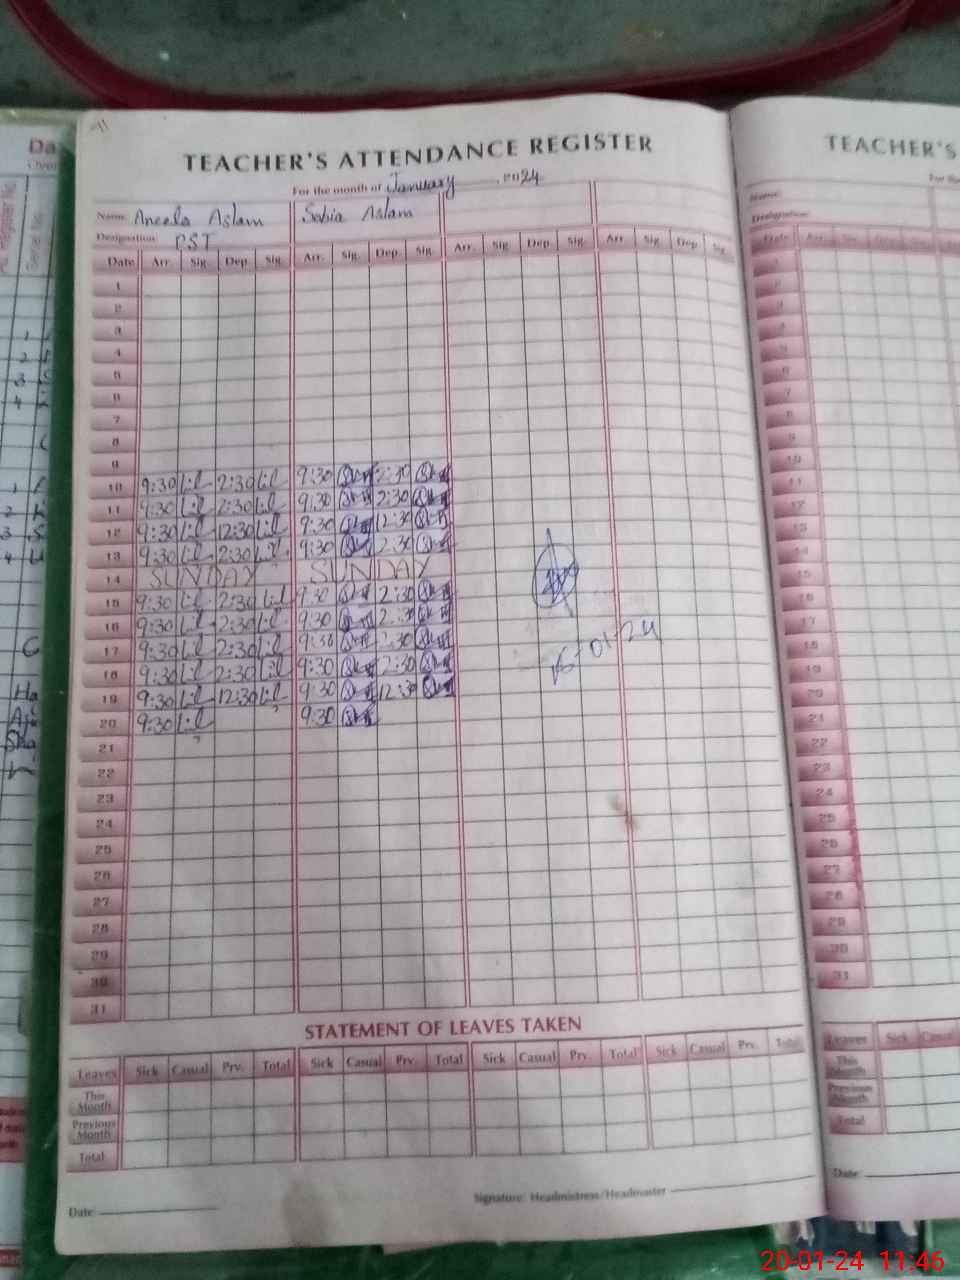 TEACHER'S ATTENDANCE REGISTER
For the month of January 2024
Name: Aneela Aslam Sobia Aslam
Designation PST
Date Arr. Sig. Dep. Sig. Arr. Sig. Dep. Sig. Arr. Sig. Dep. Sig. Arr. Sig. Dep. Sig.
1
2
3
4
5
6
7
8
9
10 9:30 2:30 9:30 2:30
11 9:30 2:30 9:30 2:30
12 9:30 12:30 9:30 12:30
13 9:30 2:30 9:30 2:30
14 SUNDAY SUNDAY
15 9:30 2:30 9:30 2:30
16 9:30 2:30 9:30 2:30
17 9:30 2:30 9:30 2:30
18 9:30 2:30 9:30 2:30
19 9:30 12:30 9:30 12:30
20 9:30 9:30
16-01-24
21
22
23
24
25
26
27
28
29
30
31
STATEMENT OF LEAVES TAKEN
Leaves Sick Casual Prv. Total Sick Casual Prv. Total Sick Casual Prv. Total Sick Casual Prv. Total
This Month
Previous Month
Total
Signature: Headmistress/Headmaster
Date:
TEACHER'S
Name:
Designation
Date Arr.
Leaves Sick Casual
This Month
Previous Month
Total
Date:
20-01-24 11:46